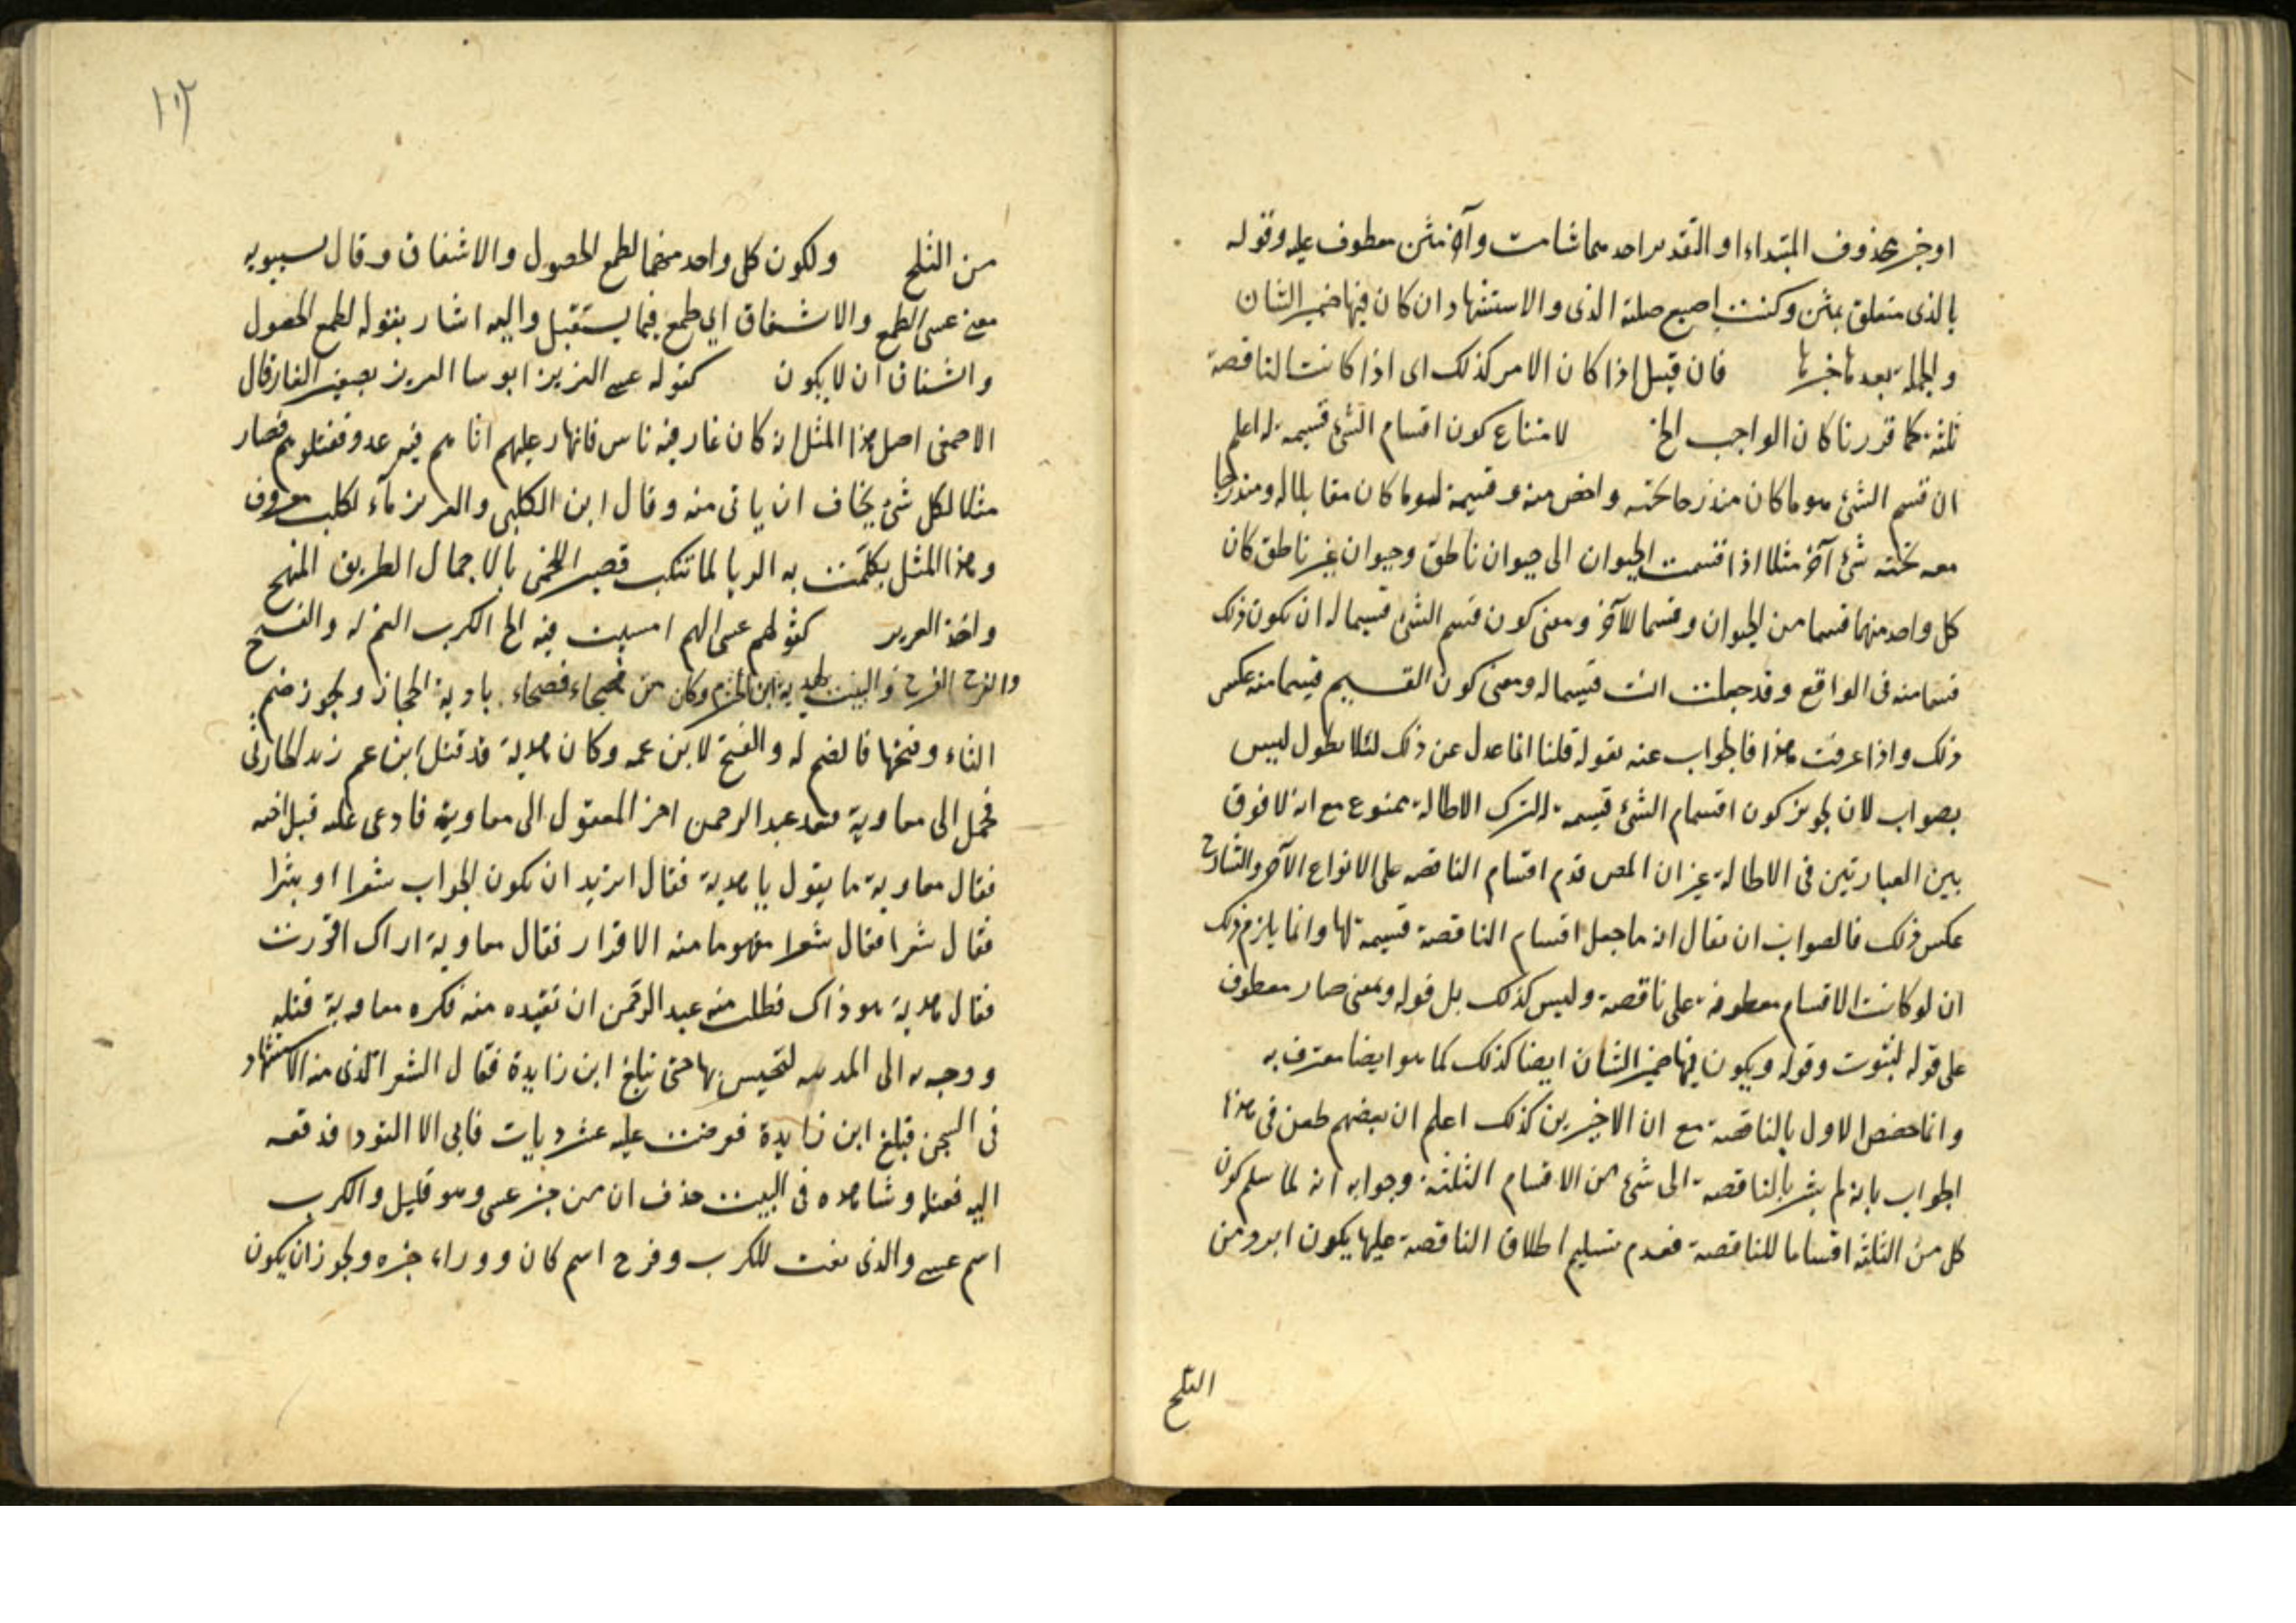 او خبر محذوف المبتداء او التقدير احدهما شامت وآخر مثن معطوف عليه وقوله
بالذى متعلق بمثن وكنت اصنع صلة الذى والاستشهاد ان كان فيها ضمير الشان
والجملة بعدها خبرها فان قيل اذا كان الامر كذلك اى اذا كانت الناقصة
ثلثة كما قررنا كان الواجب الخ لامتناع كون اقسام الشئ قسيمة له اعلم
ان قسم الشئ هو ما كان مندرجا تحته واخص منه وقسيمه هو ما كان مقابلا له ومندرجا
معه تحته شئ آخر مثلا اذا قسمت الحيوان الى حيوان ناطق وحيوان غير ناطق كان
كل واحد منهما قسما من الحيوان وقسيما للآخر ومعنى كون قسم الشئ قسيما له ان يكون ذلك
قسما منه فى الواقع وقد جعلت انت قسيما له ومعنى كون القسيم قسما منه عكس
ذلك واذا عرفت هذا فالجواب عنه بقوله قلنا انما عدل عن ذلك لئلا يطول ليس
بصواب لان تجويز كون اقسام الشئ قسيمة له لترك الاطالة ممنوع مع انه لا فرق
بين العبارتين فى الاطالة غير ان المص قدم اقسام الناقصة على الانواع الآخر والشارح
عكس ذلك فالصواب ان يقال انه ما جعل اقسام الناقصة قسيمة لها وانما يلزم ذلك
ان لو كانت الاقسام معطوفة على ناقصة وليس كذلك بل قوله وبمعنى صار معطوف
على قوله لثبوت وقوله ويكون فيها ضمير الشان ايضا كذلك كما هو ايضا معترف به
وانما خصص الاول بالناقصة مع ان الاخيرين كذلك اعلم ان بعضهم طعن فى هذا
الجواب بانه لم يشر بالناقصة الى شئ من الاقسام الثلثة وجوابه انه لما سلم كون
كل من الثلثة اقساما للناقصة فعدم تسليم اطلاق الناقصة عليها يكون ابرد من
الثلج
١٠٢
من الثلج ولكون كل واحد منهما لطمع الحصول والاشفاق وقال سيبويه
معنى عسى الطمع والاشفاق اى طمع فيما يستقبل واليه اشار بقوله لطمع الحصول
واشفاق ان لا يكون كقوله عسى الغوير ابوسا الغوير تصغير الغار قال
الاصمعى اصل هذا المثل انه كان غار فيه ناس فانهار عليهم او اتاهم فيه عدو فقتلوهم فصار
مثلا لكل شئ يخاف ان ياتى منه وقال ابن الكلبى والغوير ماء لكلب معروف
وهذا المثل تكلمت به الزبا لما تنكب قصير اللخمى بالاجمال الطريق المنهج
واخذ الغوير كقولهم عسى الهم امسيت فيه الخ الكرب الغم له والفسح
والفرج والبيت لهدبة ابن الخشرم وكان من فصحاء بادية الحجاز ويجوز ضم
التاء وفتحها فالضم له والفتح لابن عمه وكان هدبة قد قتل ابن عمه زيد الحارثى
فحمل الى معاوية فقدم عبد الرحمن اخو المقتول الى معاوية فادعى عليه قتل اخيه
فقال معاوية ما يقول يا هدبة فقال اتريد ان يكون الجواب شعرا او نثرا
فقال شعرا فقال شعرا مفهوما منه الاقرار فقال معاوية اراك اقررت
فقال هدبة هو ذاك فطلب منه عبد الرحمن ان يقيده منه فكره معاوية قتله
ووجه به الى المدينة لتحبس بها حتى يبلغ ابن زايدة فقال الشعر الذى منه الاستشهاد
فى السجن فبلغ ابن زايدة فعرضت عليه عشر ديات فابى الا القود فدفعه
اليه فقتله وشاهده فى البيت حذف ان من خبر عسى وهو قليل والكرب
اسم عسى والذى نعت للكرب وفرج اسم كان ووراء خبره ويجوز ان يكون